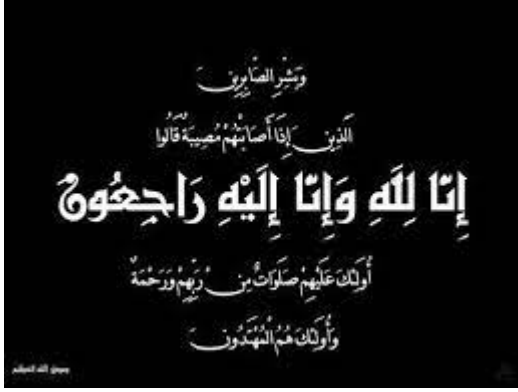 وَبَشِّرِ الصَّابِرِينَ
الَّذِينَ إِذَا أَصَابَتْهُمْ مُصِيبَةٌ قَالُوا
إِنَّا لِلَّهِ وَإِنَّا إِلَيْهِ رَاجِعُونَ
أُولَئِكَ عَلَيْهِمْ صَلَوَاتٌ مِنْ رَبِّهِمْ وَرَحْمَةٌ
وَأُولَئِكَ هُمُ الْمُهْتَدُونَ